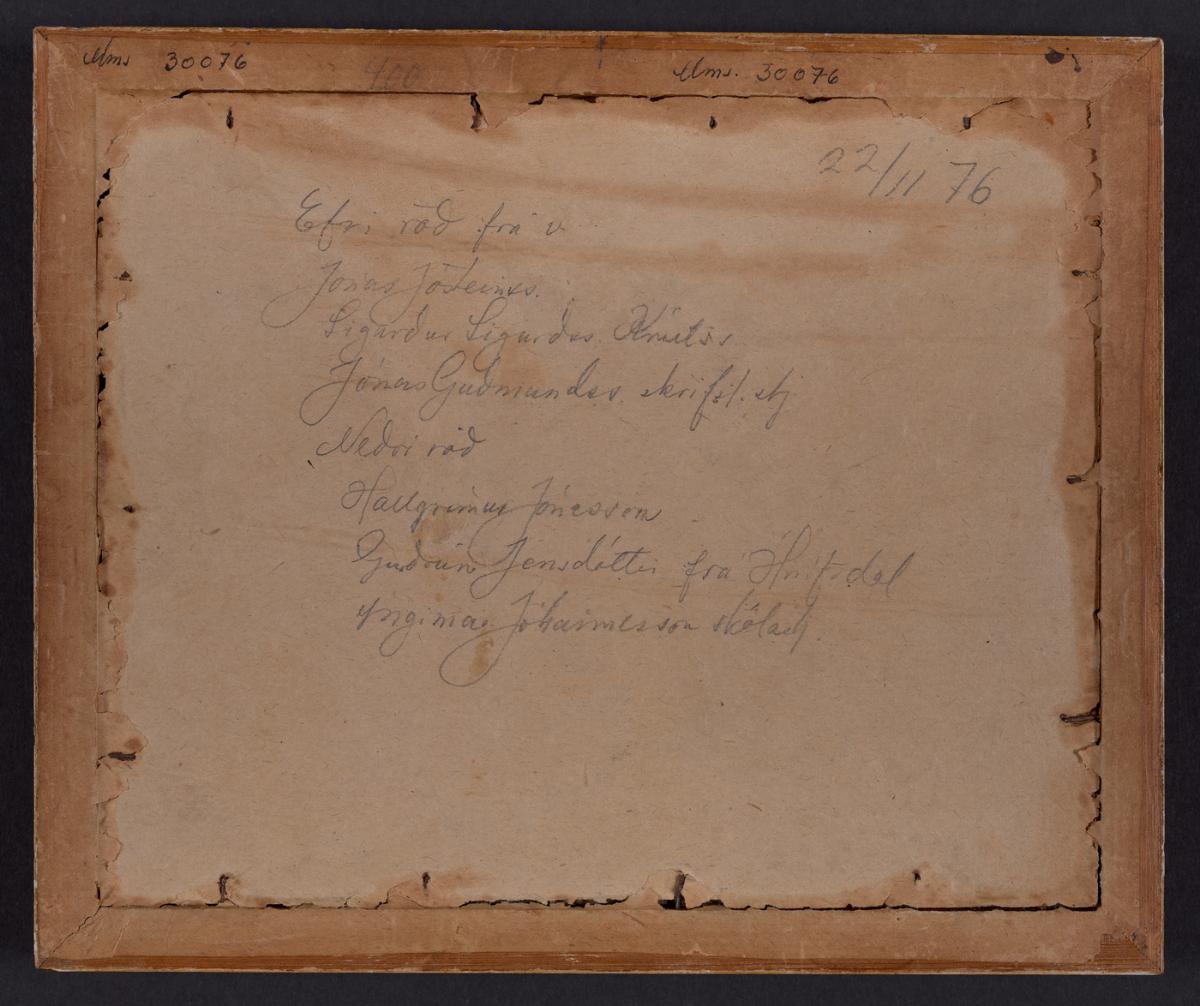 Mms 30076
400
Mms. 30076
22/11 76
Efri röð frá v
Jónas Jósteinss.
Sigurður Sigurðss.
Jónas Guðmundss. skrifst. stj
Neðri röð
Hallgrímur Jónasson
Guðrún Jensdóttir frá Hnífsdal
Yngimar Jóhannesson skólastj.